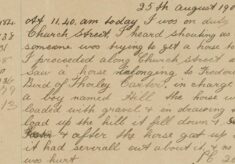 25th August 190
At 11.40. am today I was on duty
Church Street, I heard shouting as
someone was trying to get a horse to
I proceeded along Church street
Saw a horse belonging to Frederic
Bird of Thorley Carter, in charge
a boy named Hill the horse wa
load with gravel & in drawing
load up the hill it fell down &
& after the horse got up
it had severall cut about it, & no
was hurt